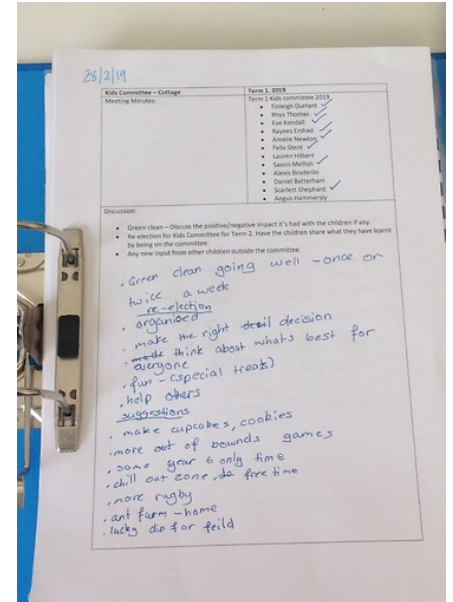 28/2/19
Kids Committee – Cottage
Term 1, 2019
Meeting Minutes:
Term 1 Kids committee 2019
• Finleigh Durrant
• Rhys Thomas
• Eve Kendall
• Rayees Ershad
• Amelie Newton
• Felix Stent
• Lauren Hilbert
• Saxon Mellish
• Alexis Bruderlin
• Daniel Batterham
• Scarlett Shephard
• Angus Hammersly
Discussion:
• Green clean – Discuss the positive/negative impact it's had with the children if any.
• Re-election for Kids Committee for Term 2. Have the children share what they have learnt
by being on the committee.
• Any new input from other children outside the committee.
. Green clean going well – once or
twice a week
re-election
. organised
. make the right decision
. think about whats best for
everyone
. fun – (special treats)
. help others
suggestions
. make cupcakes, cookies
. more out of bounds games
. some year 6 only time
. chill out zone, free time
. more rugby
. ant farm – home
. lucky dip for feild